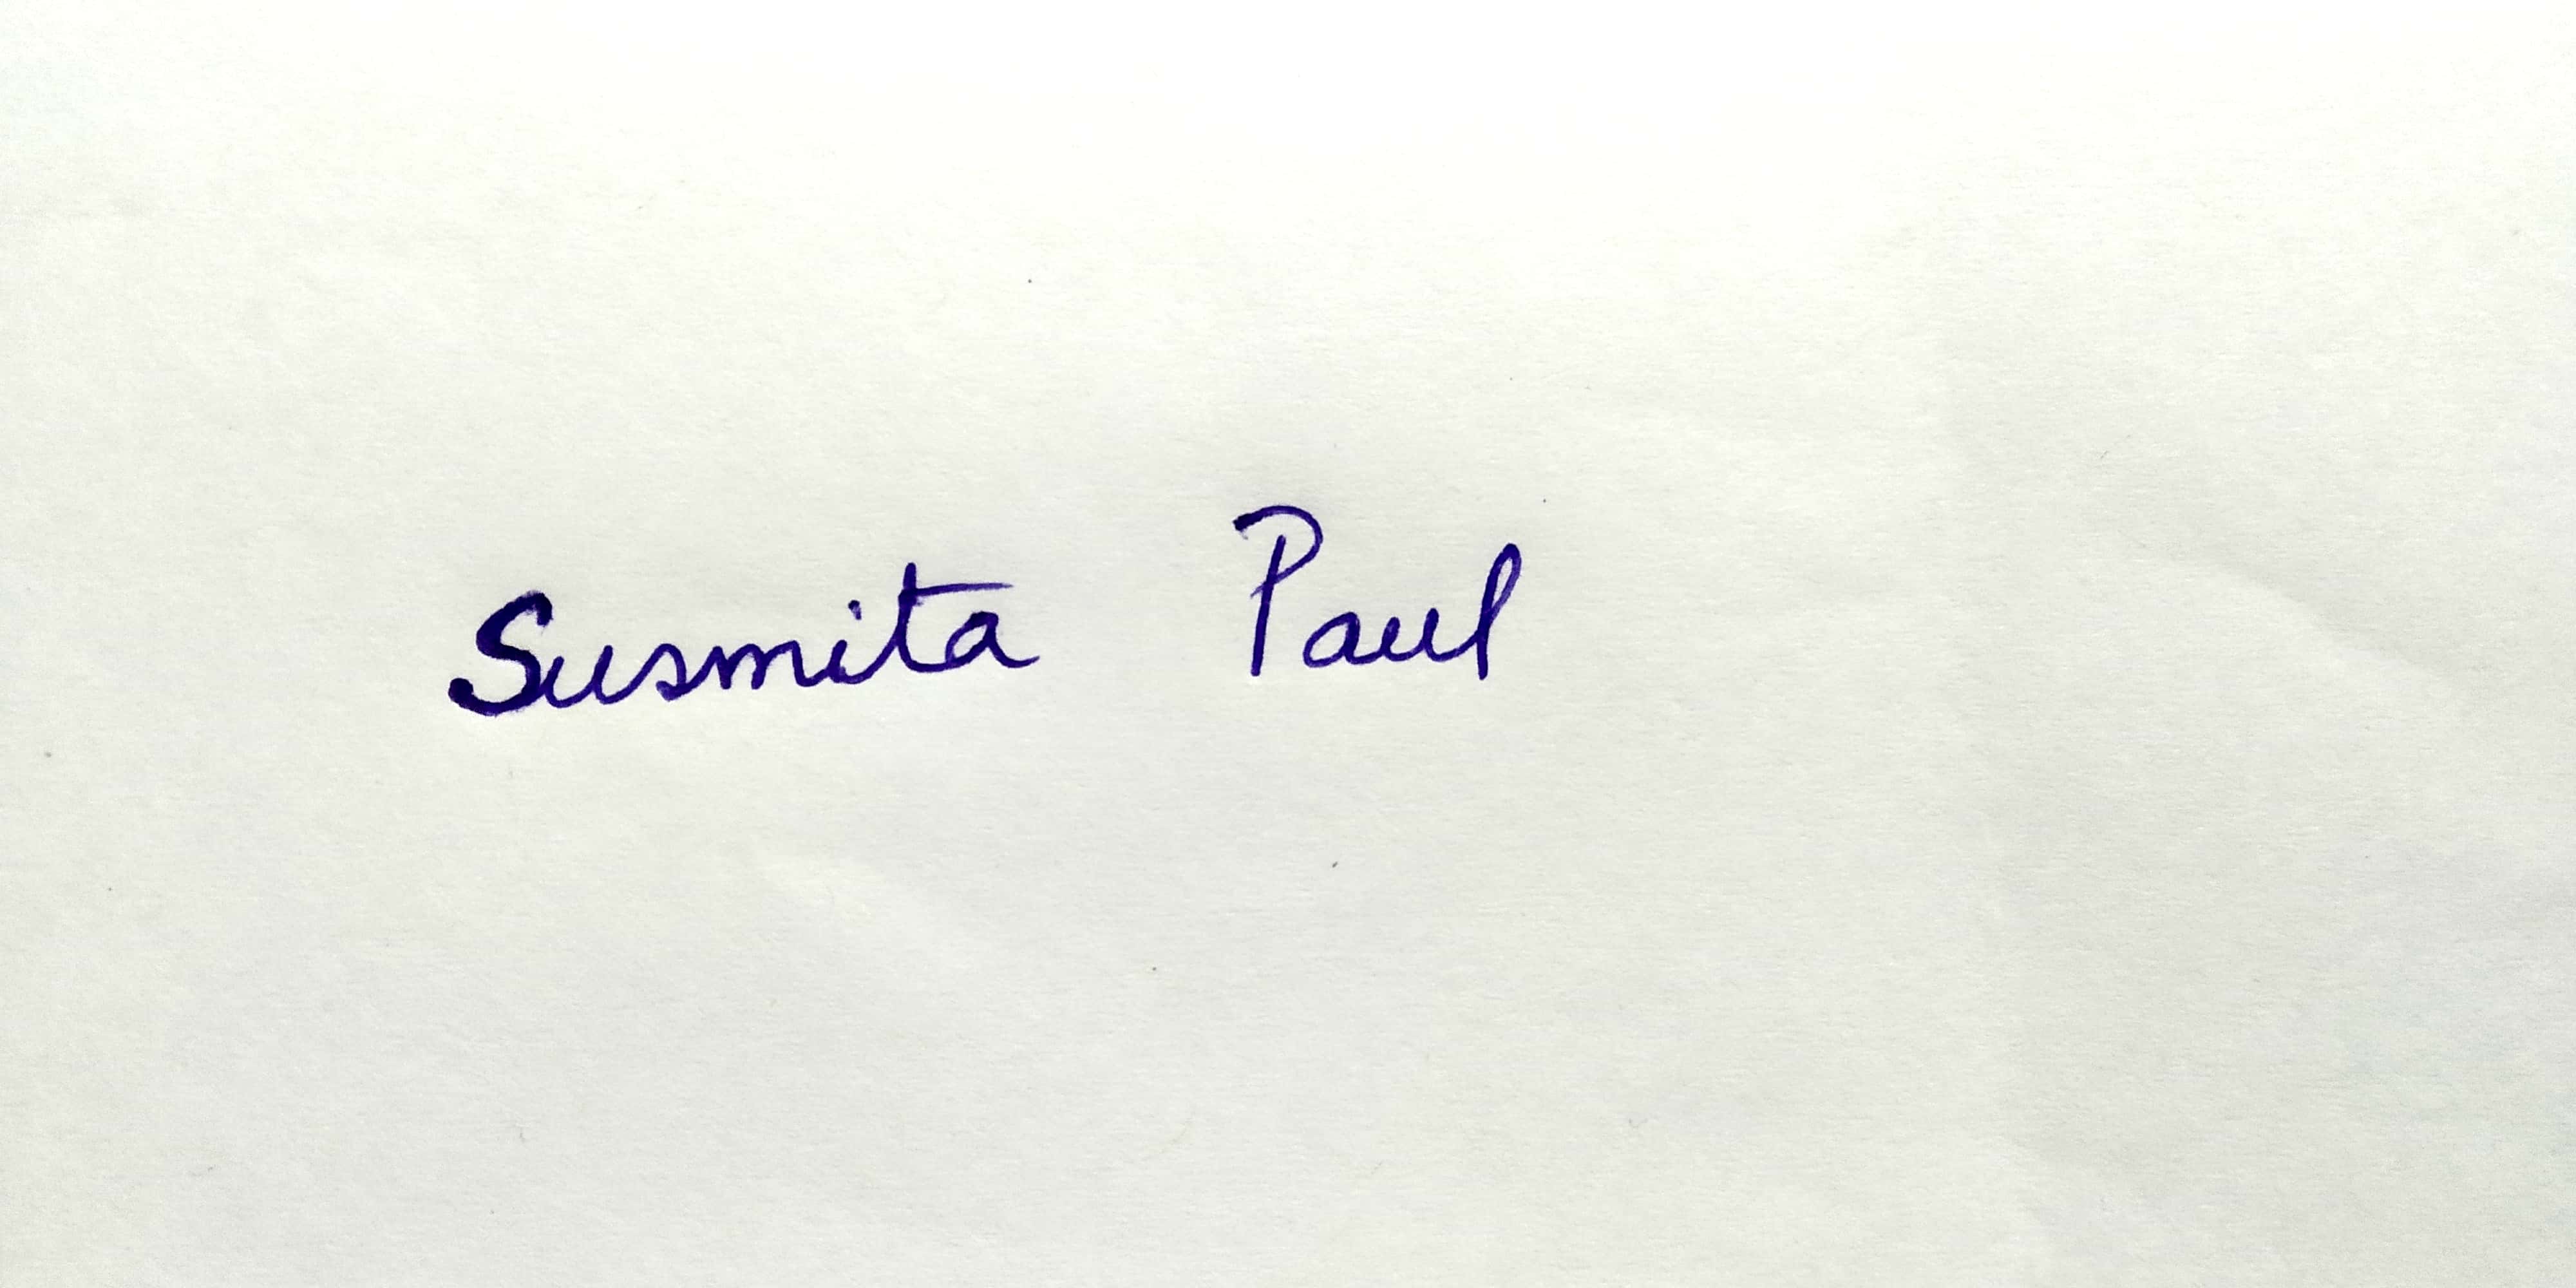 Susmita Paul